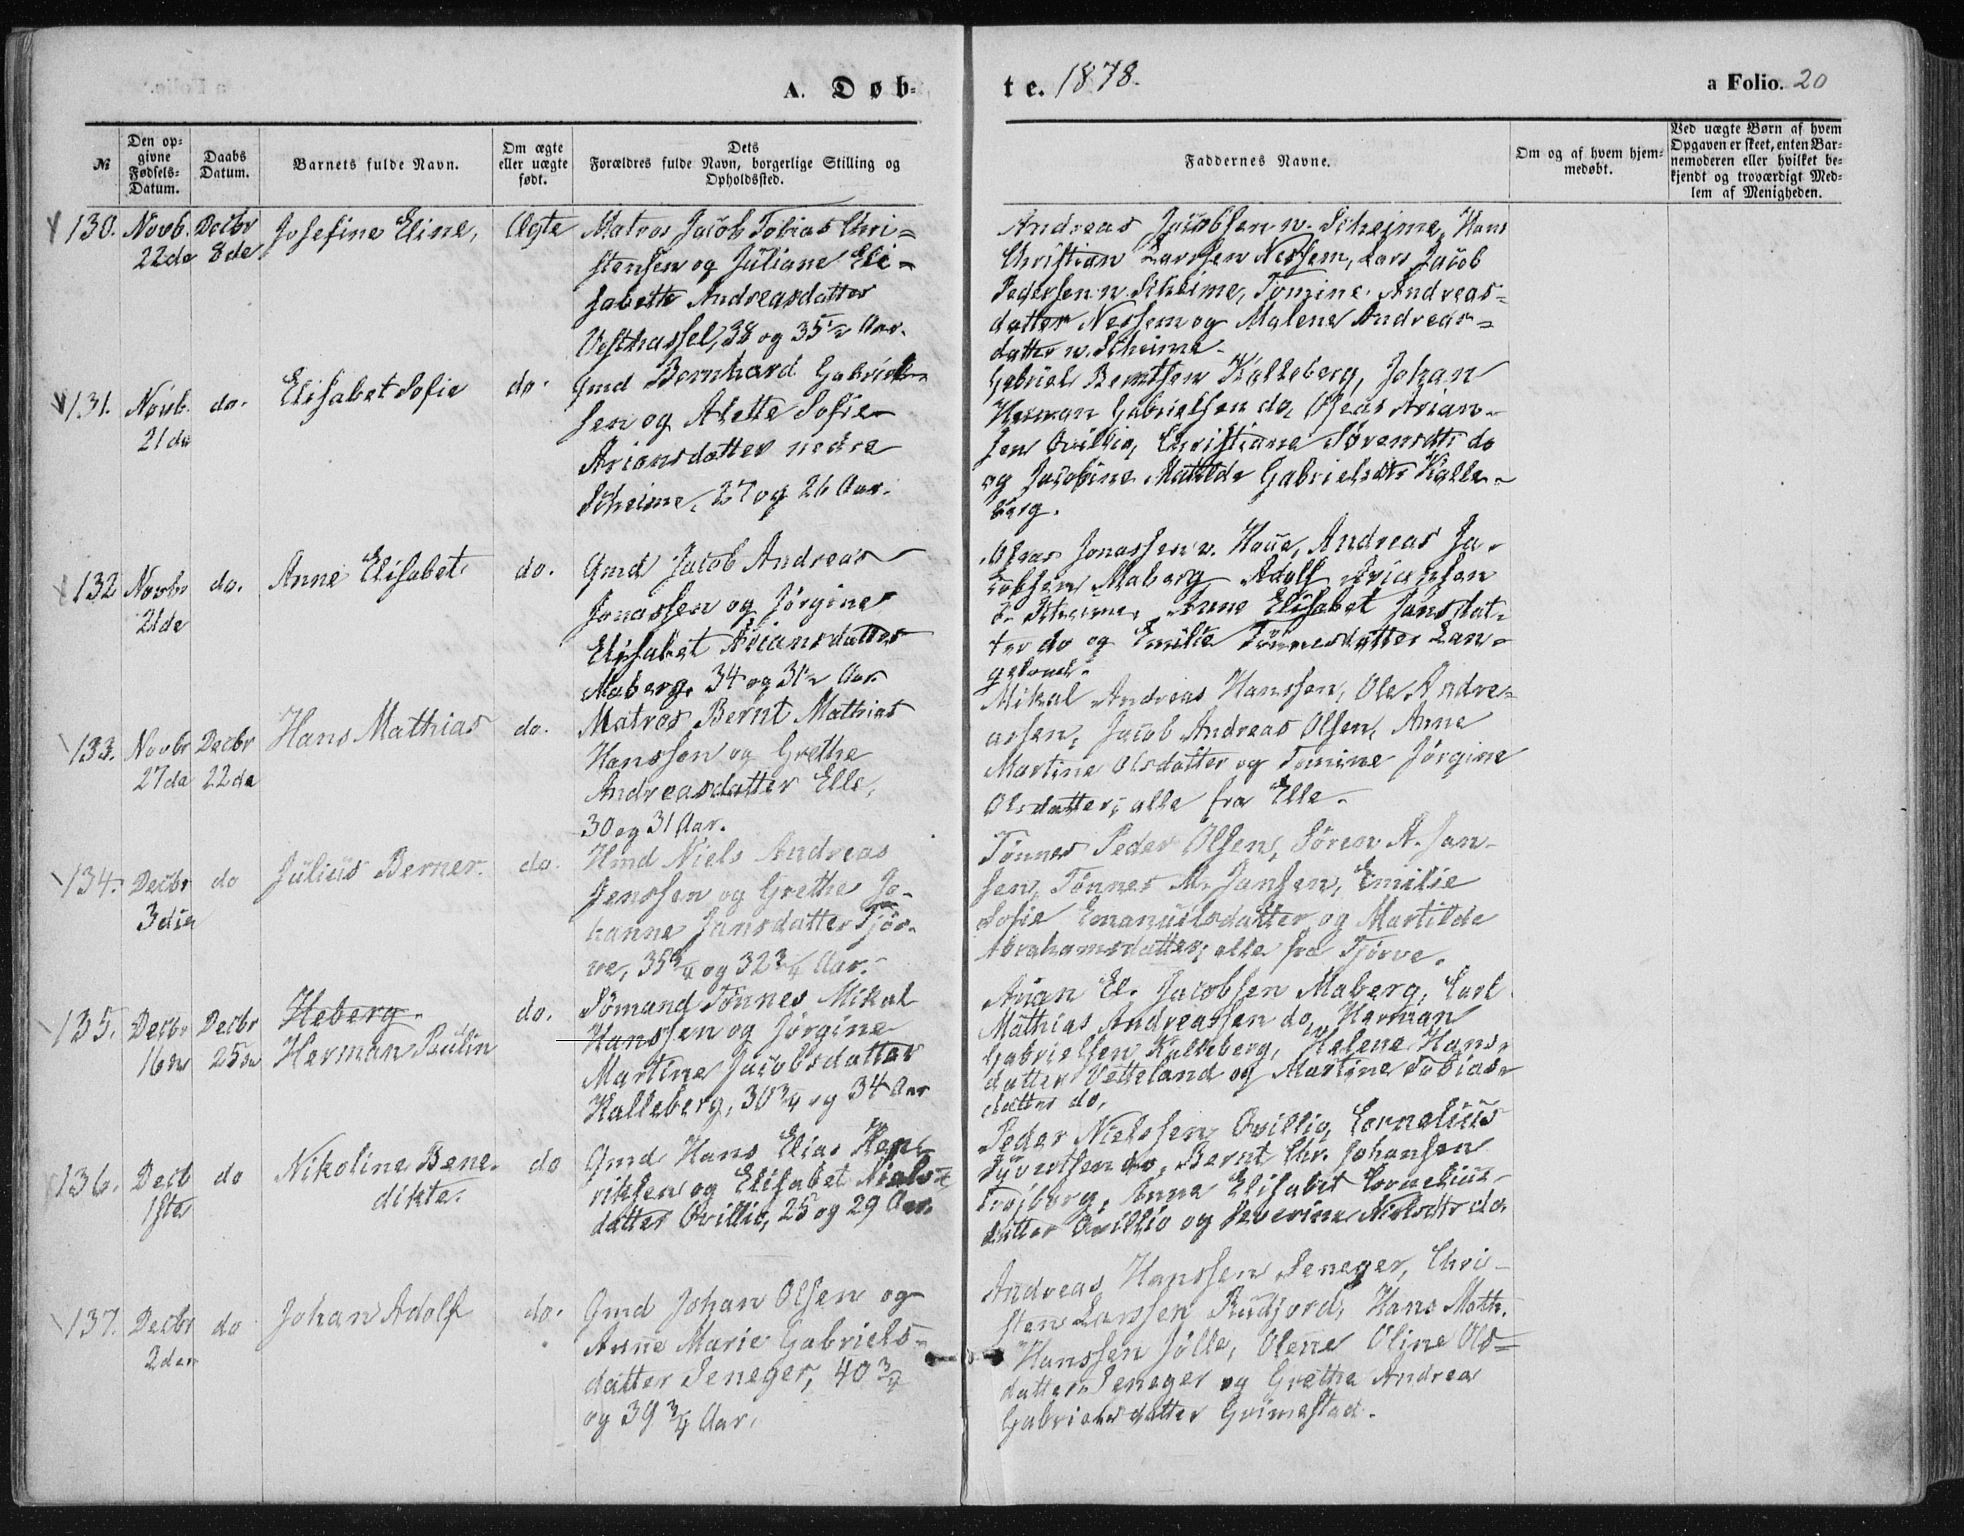 A. Døb-
te. 1878.
a Folio. 20
№
Den op-
givne
Fødsels-
Datum.
Daabs
Datum.
Barnets fulde Navn.
Om ægte
eller uægte
født.
Dets
Forældres fulde Navn, borgerlige Stilling og
Opholdssted.
Faddernes Navne.
Om og af hvem hjem-
medøbt.
Ved uægte Børn af hvem
Opgaven er skeet, enten Bar-
nemoderen eller hvilket be-
kjendt og troværdigt Med-
lem af Menigheden.
130.
Novb.
22de
Decbr
8de
Josefine Eline,
Ægte
Matros Jacob Tobias Chri-
stensen og Juliane Eli-
sabeth Andreasdatter
Vesthassel, 38 og 35½ Aar.
Andreas Jacobsen n. Skeime, Hans
Christian Larssen Nessem, Lars Jacob
Pedersen n. Skeime, Tomine Andreas-
datter Nessem og Malene Andreas-
datter n. Skeime.
131.
Novb.
21de
do.
Elisabet Sofie
do.
Gmd Bernhard Gabriel-
sen og Alette Sofie
Ariansdatter nedre
Skeime, 27 og 26 Aar.
Gabriel Berntsen Kalleberg, Johan
Herman Gabrielsen do, Oseas Arian-
sen Ovillig, Christiane Sørensdtr do
og Jacobine Matilde Gabrielsdtr Kalle-
berg.
132
Novbr
21de
do.
Anne Elisabet
do.
Gmd Jacob Andreas
Jonassen og Jørgine
Elisabet Ariansdatter
Maberg, 34 og 31½ Aar
Oseas Jonassen v. Haue, Andreas Ja-
cobsen Maberg, Adolf Ariansen
Skeime, Anne Elisabet Jansdat-
ter do og Emilie Tønnesdatter Lan-
geland.
133.
Novbr
27de
Decbr
22de
Hans Mathias
do.
Matros Bernt Mathias
Hanssen og Grethe
Andreasdatter Elle,
30 og 31 Aar.
Mikal Andreas Hanssen, Ole Andre-
assen, Jacob Andreas Olsen, Anne
Martine Olsdatter og Tomine Jørgine
Olsdatter, alle fra Elle.
134.
Decbr
3die
do
Julius Berner.
do.
Hmd Niels Andreas
Jenssen og Grethe Jo-
hanne Jansdatter Tjør-
ve, 35¾ og 32¾ Aar.
Tønnes Peder Olsen, Søren A. Jan-
sen, Tønnes M. Jansen, Emilie
Sofie Emanuelsdatter og Martilde
Abrahamsdatter, alle fra Tjørve.
135.
Decbr
16de
Decbr
25de
Heberg.
Herman Paulin
do.
Sømand Tønnes Mikal
Hanssen og Jørgine
Martine Jacobsdatter
Kalleberg, 30¾ og 34 Aar
Arian El. Jacobsen Maberg, Carl
Mathias Andreassen do, Herman
Gabrielsen Kalleberg, Helene Hans-
datter Vetteland og Martine Tobias-
datter do.
136.
Decb
1ste
do
Nikoline Bene-
dikte.
do
Gmd Hans Elias Hen-
riksen og Elisabet Niels-
datter Ovillig, 25 og 29 Aar.
Peder Nielssen Ovillig, Cornelius
Syvertsen do, Bernt Chr. Johansen
Frøjberg, Anna Elisabet Cornelius-
datter Ovillig og Severine Nielsdtr do.
137.
Decbr
2den
do
Johan Adolf
do.
Gmd Johan Olsen og
Anne Marie Gabriels-
datter Seneger, 40¾
og 39¾ Aar.
Andreas Hanssen Seneger, Chri-
sten Larssen Rudjord, Hans Math.
Hanssen Jølle, Olene Oline Ols-
datter Seneger og Grethe Andrea
Gabrielsdatter Grimestad.